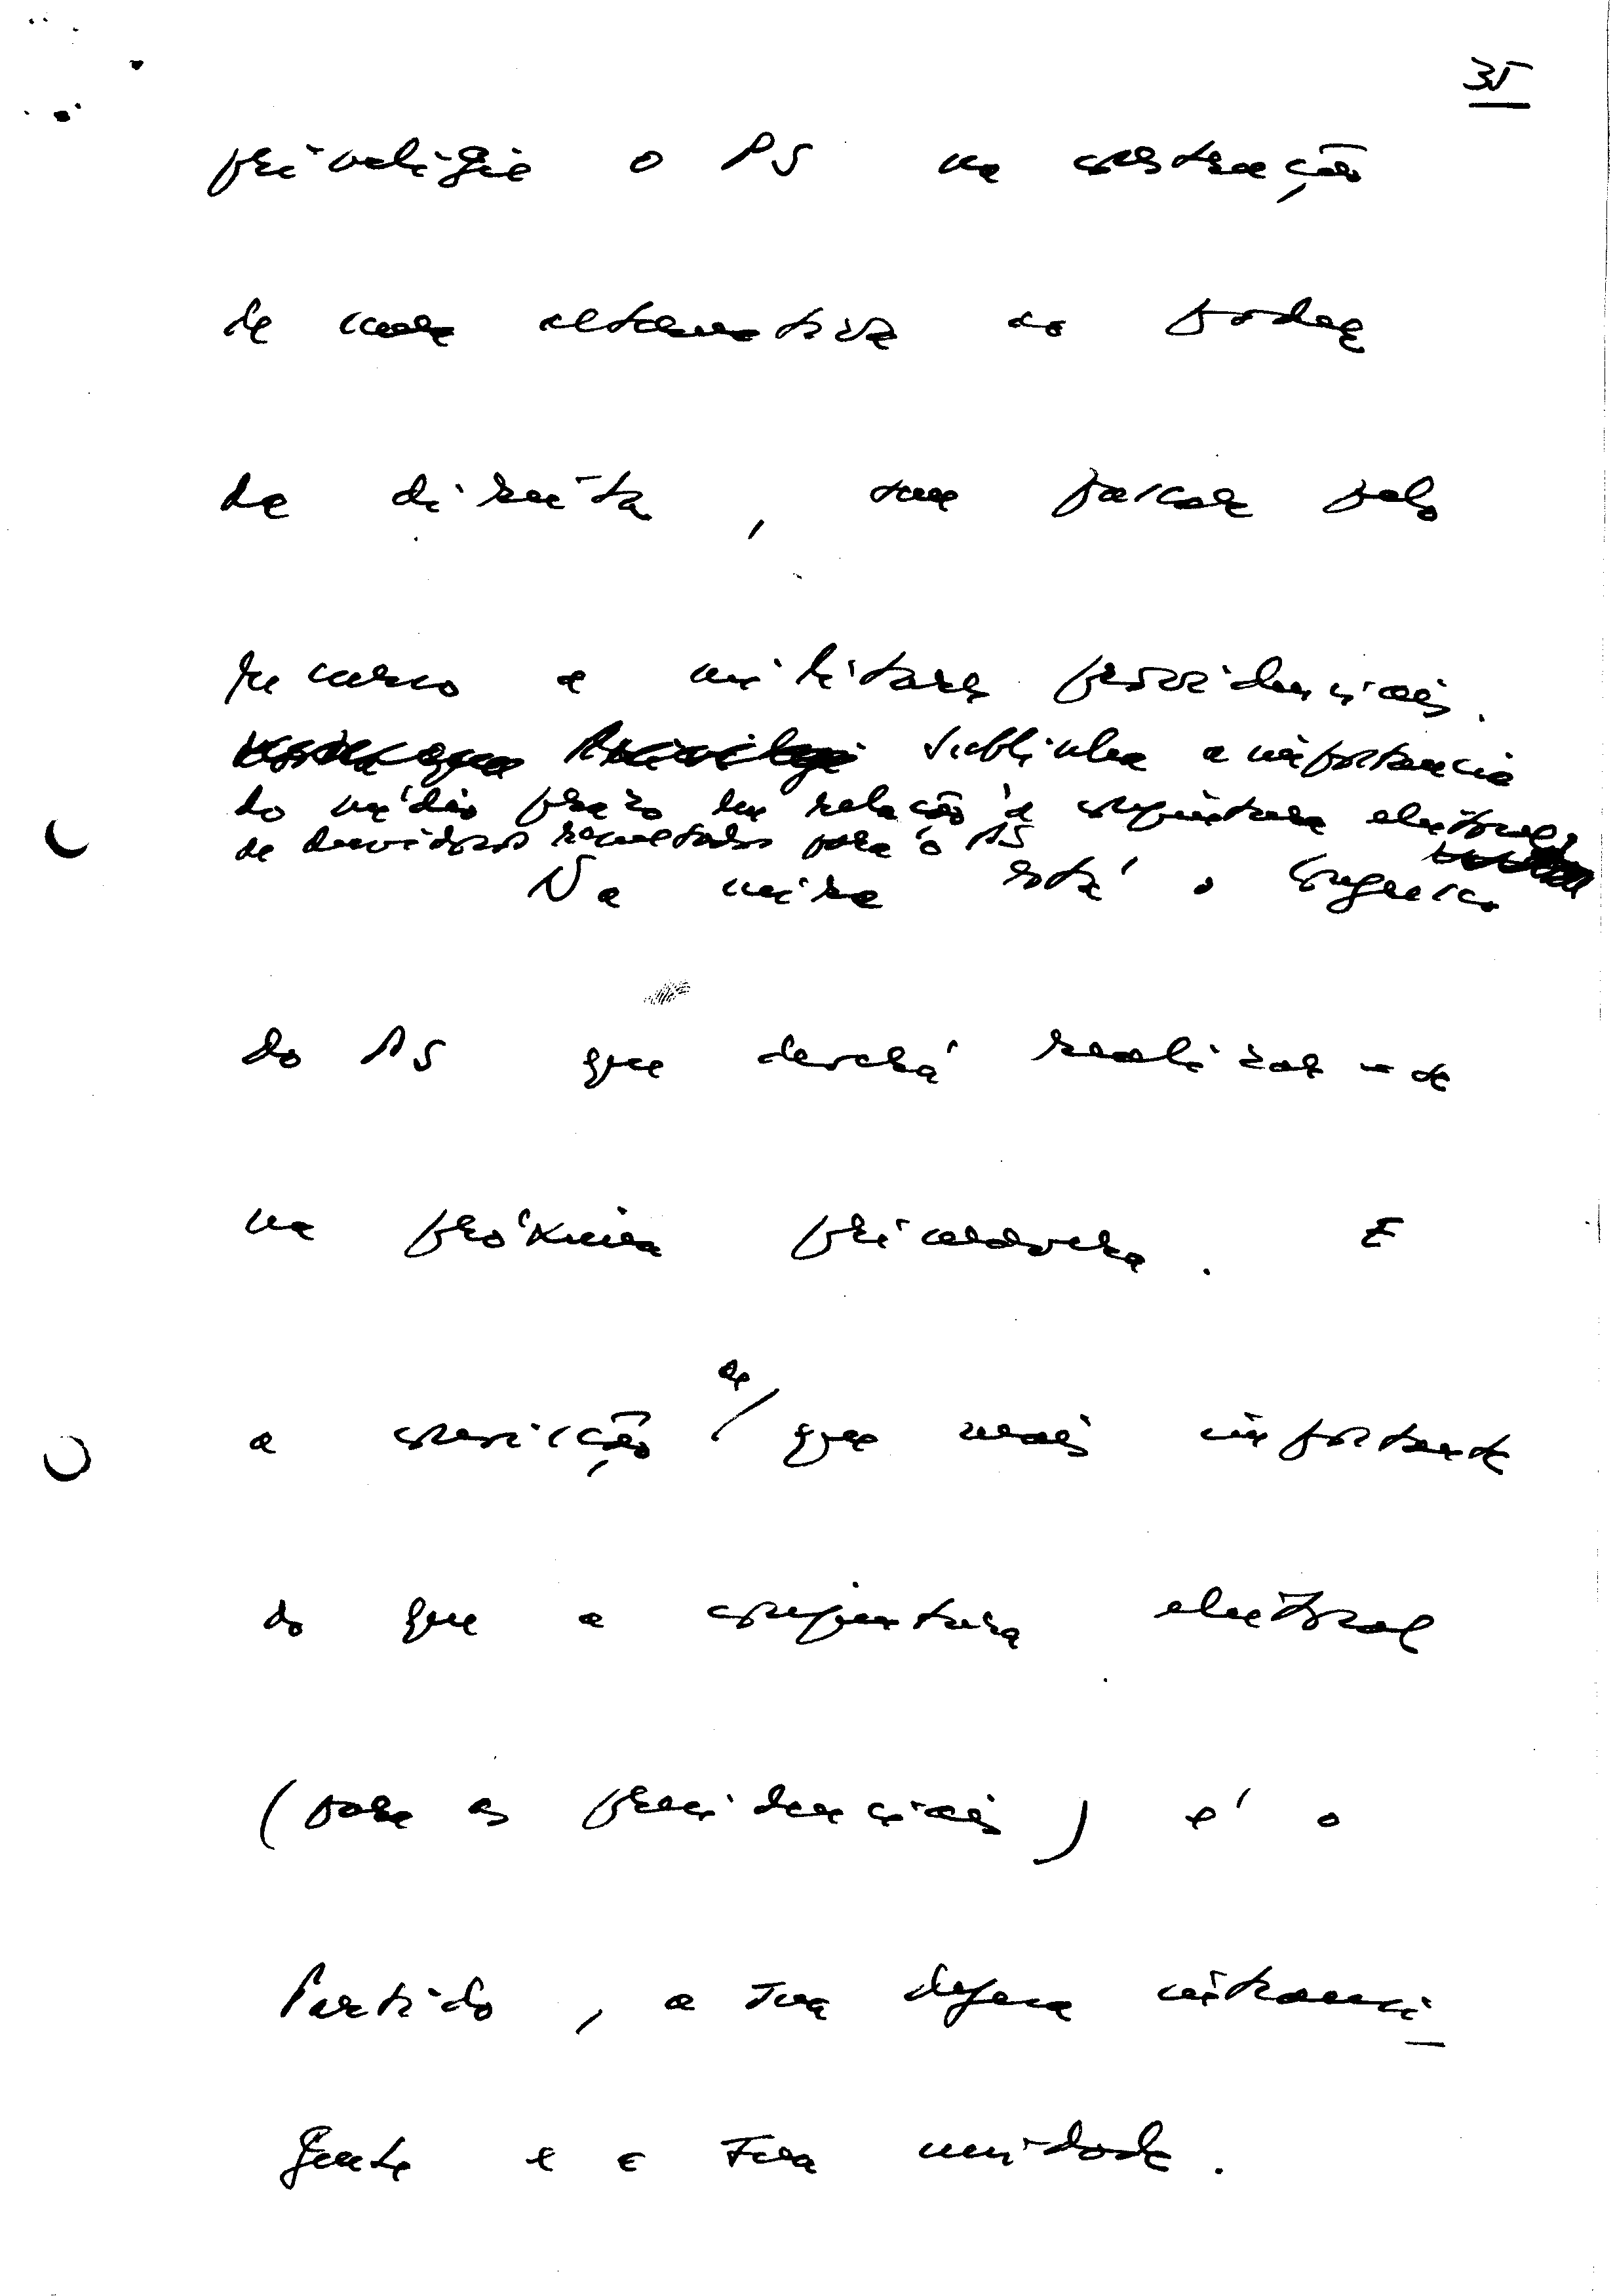 35
privaligie o PS na construção
de uma alternativa ao poder
da direita, sem passar pelo
recurso a militares providenciais.
Sublinha a importancia
do médio prazo em relação à conjuntura eleitoral,
de duvidosos resultados para o PS
Na mira está o Congresso
do PS que deverá realizar-se
na próxima primavera. E
a convicção de que mais importante
do que a conjuntura eleitoral
(para as presidenciais) é o
Partido, a sua defesa intransi-
gente e a sua unidade.